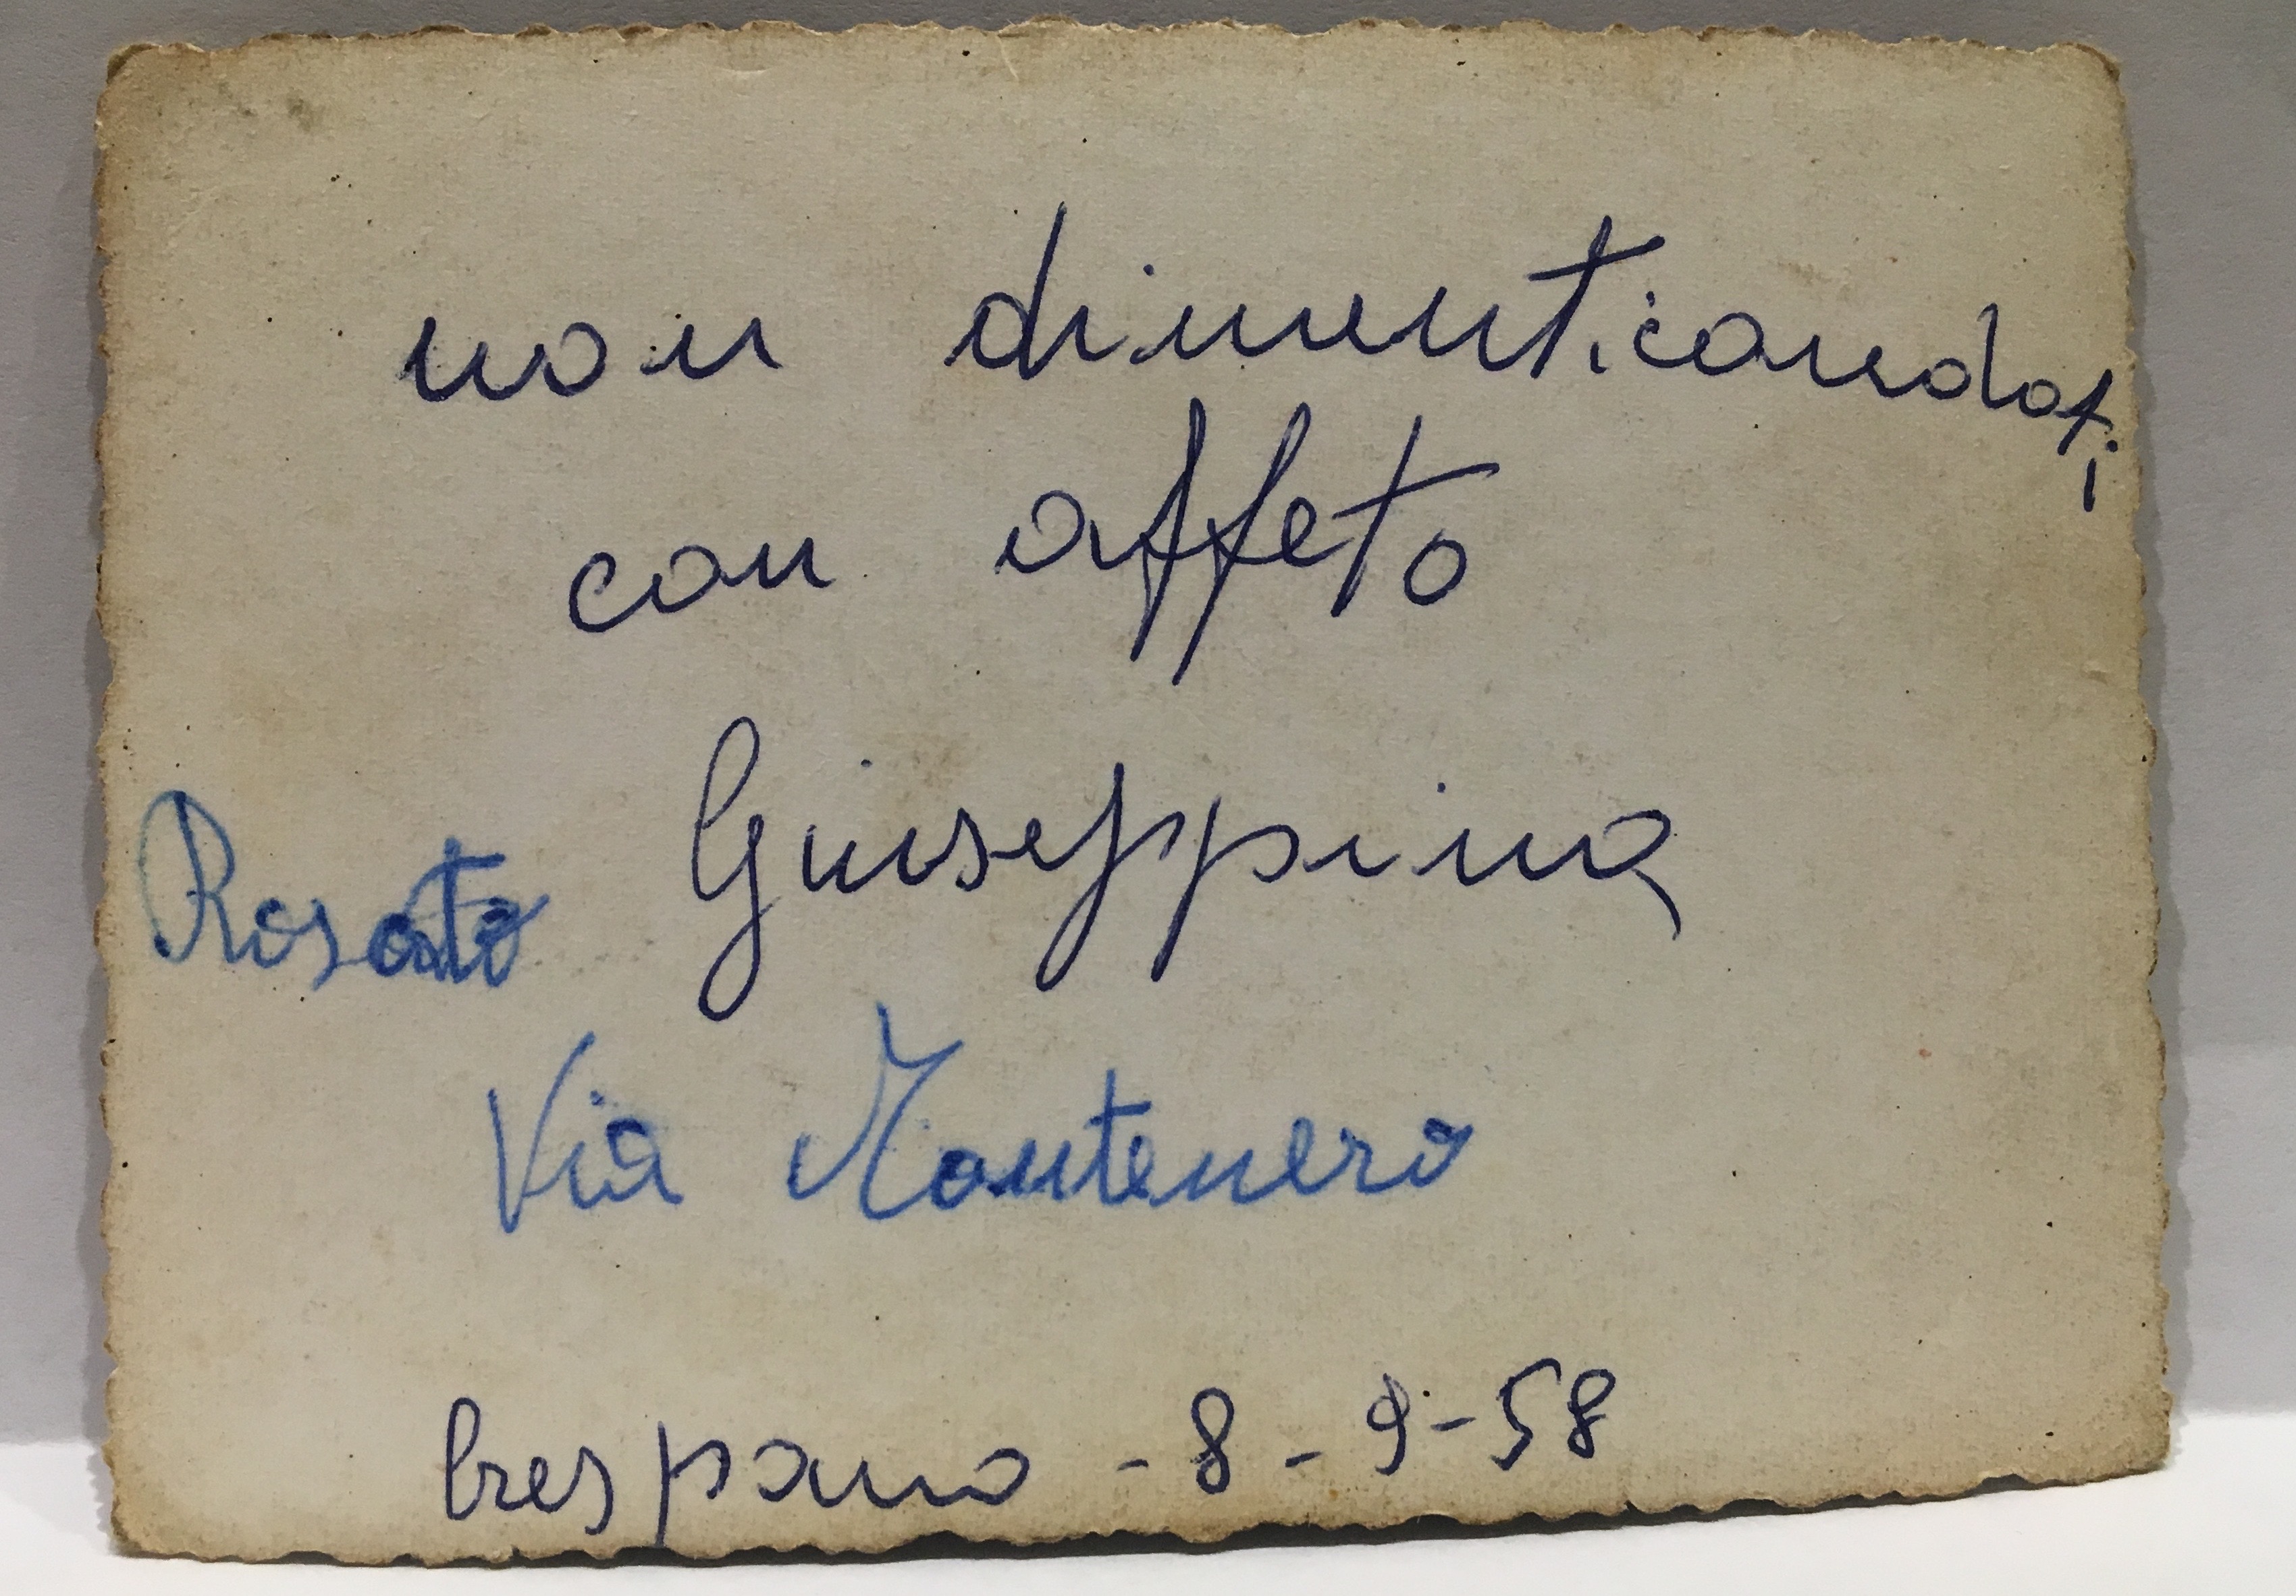 non dimenticandoti
con affeto
Rosato Giuseppina
Via Montenero
Crespano - 8 - 9 - 58